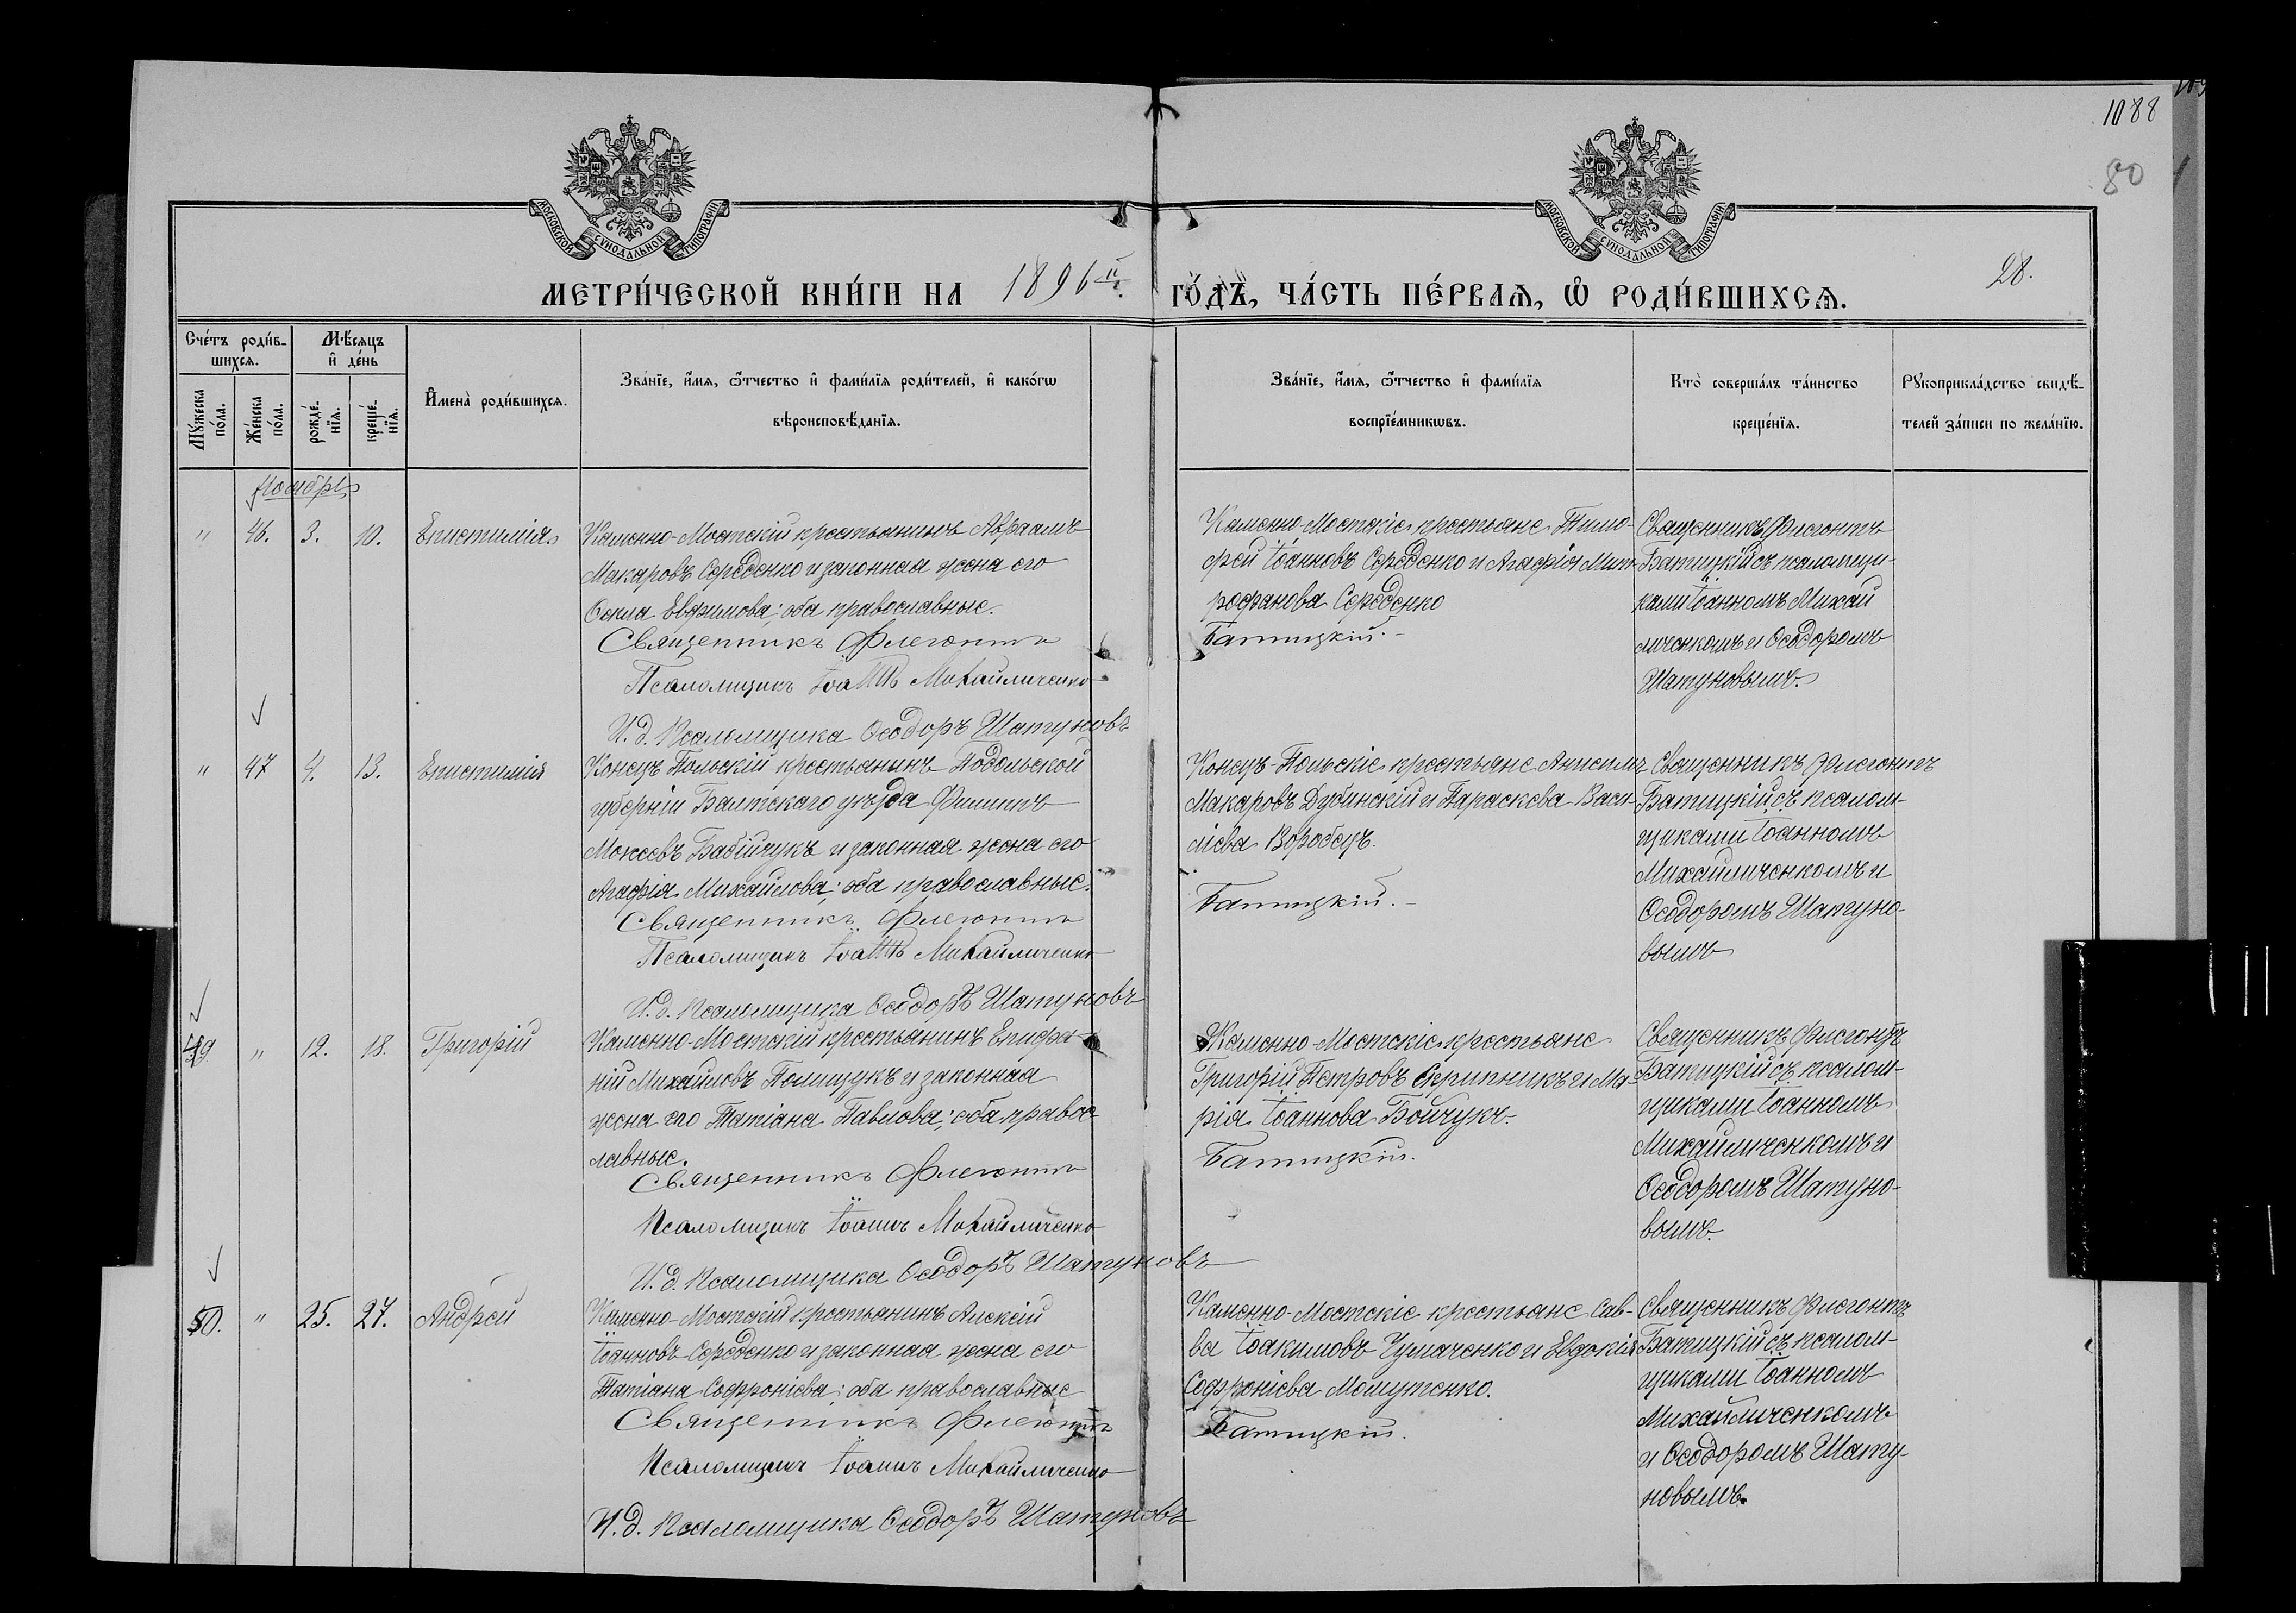 1088
80
МОСКОВСКОЙ СѴНОДАЛЬНОЙ ТИПОГРАФІИ
МОСКОВСКОЙ СѴНОДАЛЬНОЙ ТИПОГРАФІИ
28.
МЕТРИ́ЧЕСКОЙ КНИ́ГИ НА 1896й ГО́ДЪ, ЧА́СТЬ ПЕ́РВАѦ, Ѡ РОДИ́ВШИХСѦ.
Сче́тъ роди́в-
шихсѧ.
Мѣ́сѧцъ
и҆ де́нь
Мꙋ́жеска
по́ла.
Же́нска
по́ла.
рожде́-
нїѧ.
креще́-
нїѧ.
И҆мена̀ роди́вшихсѧ.
Зва́нїе, и҆́мѧ, ѻ҆́тчество и҆ фами́лїѧ роди́телей, и҆ како́гѡ
вѣроисповѣ́данїѧ.
Зва́нїе, и҆́мѧ, ѻ҆́тчество и҆ фами́лїѧ
воспрїе́мникѡвъ.
Кто̀ соверша́лъ та́инство
креще́нїѧ.
Рꙋкоприкла́дство свидѣ́-
телей за́писи по жела́нїю.
Ноябрь
" 46. 3. 10. Епистимія
Каменно-Мостскій крестьянинъ Авраамъ
Макаровъ Середенко и законная жена его
Ѳекла Евфимова; оба православные.
Священникъ Флегонтъ
Псаломщикъ Іоаннъ Михайличенко
И.д. Псаломщика Ѳеодоръ Шатуновъ
Каменно-Мостскіе крестьяне Тимо-
фей Іоанновъ Середенко и Агафія Мит-
рофанова Середенко
Батицкій.
Священникъ Флегонтъ
Батицкій съ псаломщи-
ками Іоанномъ Михай
личенкомъ и Ѳеодоромъ
Шатуновымъ.
" 47 4. 13. Епистимія
Конецъ-Польскій крестьянинъ Подольской
губерніи Балтскаго уѣзда Филиппъ
Мокеевъ Бабійчукъ и законная жена его
Агафія Михайлова; оба православные.
Священникъ Флегонтъ
Псаломщикъ Іоаннъ Михайличенко
И.д. Псаломщика Ѳеодоръ Шатуновъ
Конецъ-Польскіе крестьяне Анисимъ
Макаровъ Дубинскій и Параскева Васи-
ліева Воробецъ.
Батицкій.
Священникъ Флегонтъ
Батицкій съ псалом-
щиками Іоанномъ
Михайличенкомъ и
Ѳеодоромъ Шатуно-
вымъ
49 " 12. 18. Григорій
Каменно-Мостскій крестьянинъ Епифа-
ній Михайловъ Полищукъ и законная
жена его Татіана Павлова; оба правос-
лавные.
Священникъ Флегонтъ
Псаломщикъ Іоаннъ Михайличенко
И.д. Псаломщика Ѳеодоръ Шатуновъ
Каменно-Мостскіе крестьяне
Григорій Петровъ Скрипникъ и Ма-
рія Іоаннова Бойчукъ.
Батицкій.
Священникъ Флегонтъ
Батицкій съ псалом-
щиками Іоанномъ
Михайличенкомъ и
Ѳеодоромъ Шатуно-
вымъ.
50. " 25. 27. Андрей
Каменно-Мостскій крестьянинъ Алексій
Іоанновъ Середенко и законная жена его
Татіана Софроніева; оба православные
Священникъ Флегонтъ
Псаломщикъ Іоаннъ Михайличенко
И.д. Псаломщика Ѳеодоръ Шатуновъ
Каменно-Мостскіе крестьяне Сав-
ва Іоакимовъ Чумаченко и Евдокія
Софроніева Мошутенко.
Батицкій.
Священникъ Флегонтъ
Батицкій съ псалом-
щиками Іоанномъ
Михайличенкомъ
и Ѳеодоромъ Шату-
новымъ.